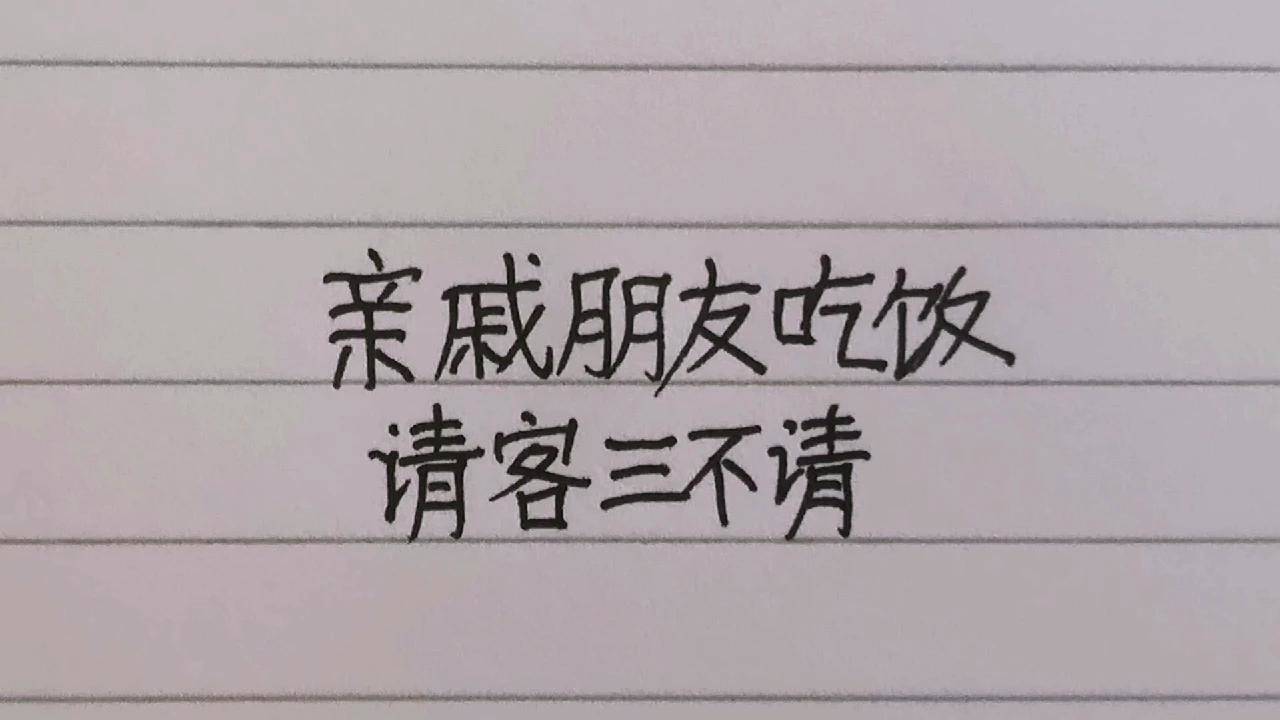 亲戚朋友吃饭
请客三不请